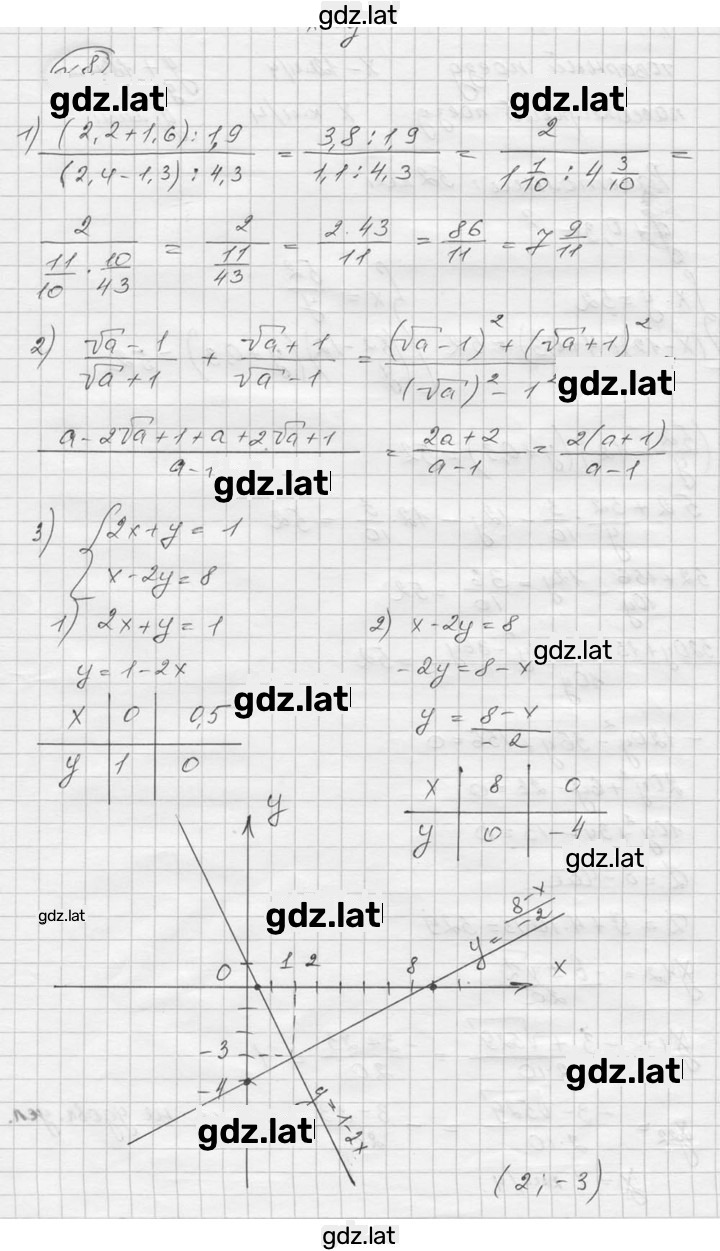 gdz.lat
№8)
gdz.lat gdz.lat
1) (2,2+1,6):1,9 / (2,4-1,3):4,3 = 3,8:1,9 / 1,1:4,3 = 2 / 1 1/10 : 4 3/10 =
2 / 11/10 · 10/43 = 2 / 11/43 = 2·43 / 11 = 86/11 = 7 9/11
2) √a-1 / √a+1 + √a+1 / √a-1 = (√a-1)² + (√a+1)² / (√a)² - 1²
gdz.lat
a-2√a+1+a+2√a+1 / a-1 = 2a+2 / a-1 = 2(a+1) / a-1
gdz.lat
3) { 2x+y=1
x-2y=8
1) 2x+y=1
y=1-2x
gdz.lat
x 0 0,5
y 1 0
2) x-2y=8
gdz.lat
-2y=8-x
y = 8-x / -2
x 8 0
y 0 -4
gdz.lat
y
gdz.lat
gdz.lat
y = 8-x / -2
0 1 2 8 x
-3
-4
gdz.lat
gdz.lat
y=1-2x
(2;-3)
gdz.lat